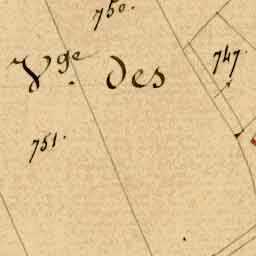 750.
747.
Vge des
751.